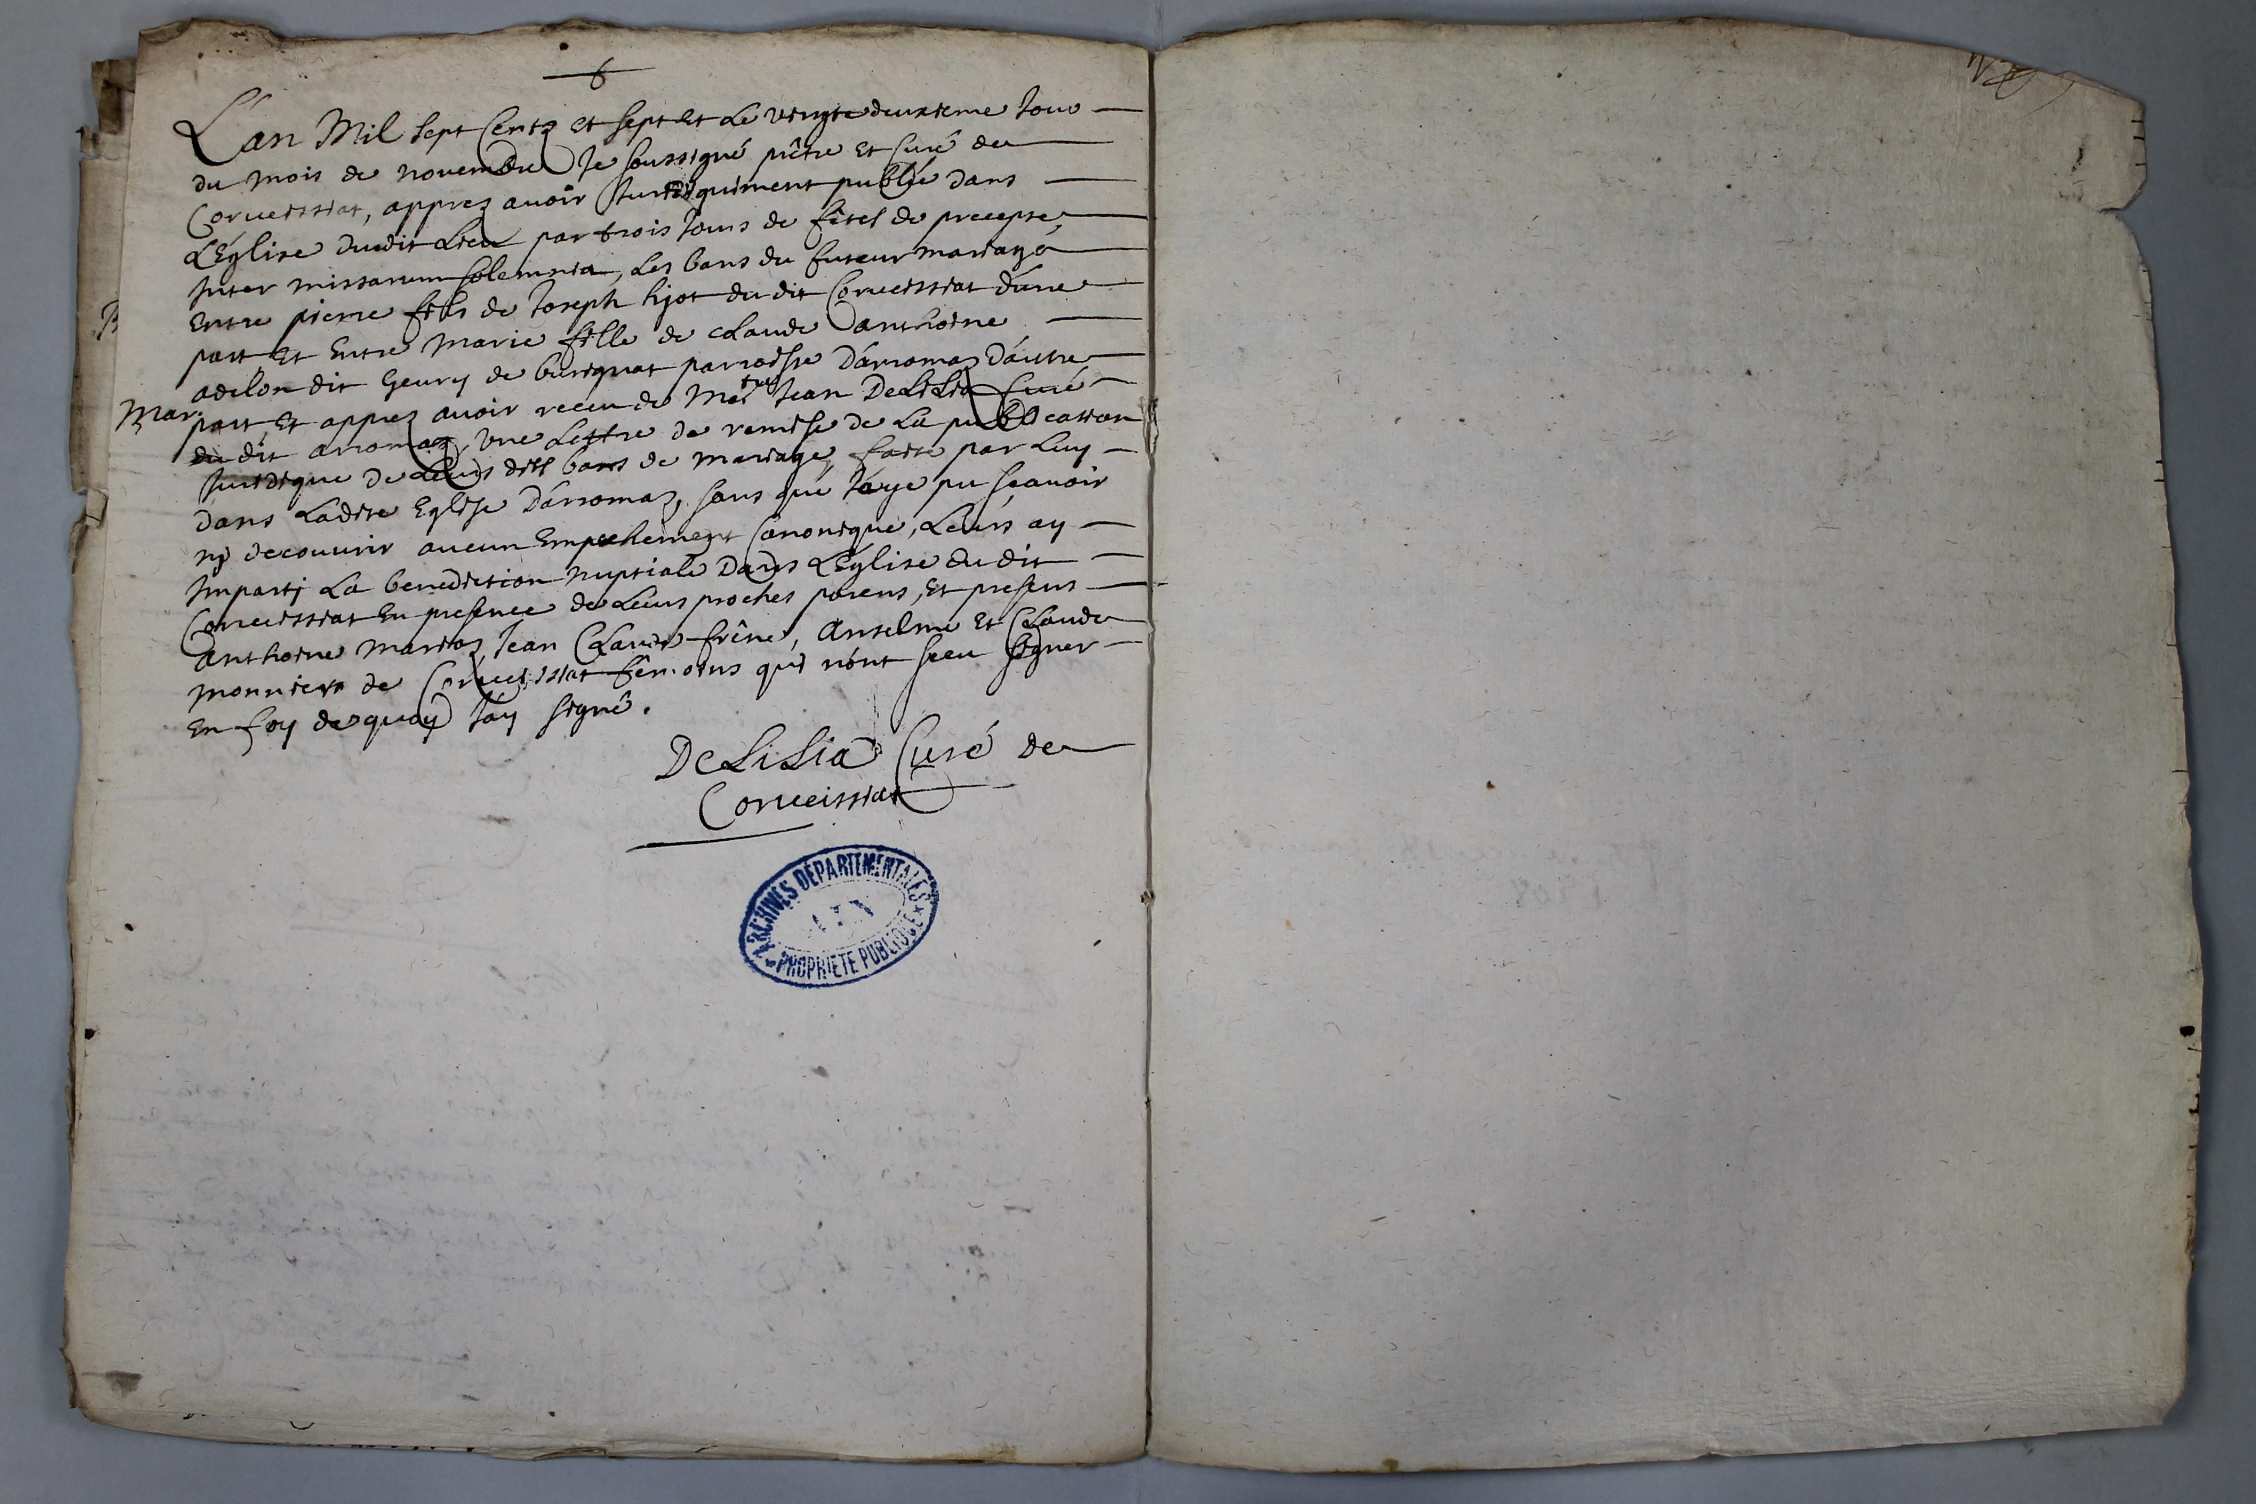 6
L'an Mil sept Centz et sept et le vingte deuxieme Jour
du mois de novembre Je soussigné prêtre et Curé de
Corveissiat, apprez avoir Juridiquement publié dans
L'Eglise dudit Lieu par trois Jours de fêtes de precepte
Inter missarum solemnia, Les bans du futeur mariage
Entre pierre fils de Joseph hyot du dit Corveissiat d'une
part et Entre Marie fille de claude anthoine
adilon dit Geury de burignat parroisse D'arromaz D'autre
Mar: part, Et apprez avoir receu de Mre Jean DeLiLia Curé
du dit arromaz, une Lettre de remise de La publication
Juridique de Leurs dits bans de mariage, faite par Luy
dans Ladite Eglise D'arromaz, sans que J'aye pu sçavoir
ny decouvrir aucun Empechement Canonique, Leurs ay
Imparti La benediction nuptiale Dans L'Eglise du dit
Corveissiat En presence de Leurs proches parens, Et presens
anthoine Maritaz, Jean Claude frêne, Anselme Et Claude
monnier de Corveissiat têmoins qui n'ont sceu signer
En foy de quoy J'ay signé.
DeLiLia Curé de
Corveissiat
ARCHIVES DÉPARTEMENTALES
AIN
PROPRIÉTÉ PUBLIQUE